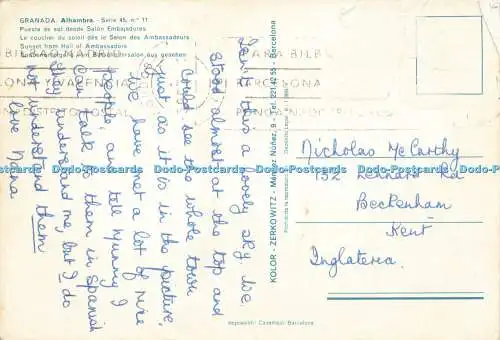 GRANADA. Alhambra - Serie 45, n.º 11
Puesta de sol desde Salón Embajadores
Le coucher du soleil dès le Salon des Ambassadeurs
Sunset from Hall of Ambassadors
Isn't this a lovely sky. We
stood almost at the top and
could see the whole town
just as it is in the picture,
We have met a lot of nice
people, and tell Mummy I
can talk to them in Spanish
they understand me, but I do
not understand them
love Nana
KOLOR - ZERKOWITZ - Martínez Núñez, 9 - Tel. 221 42 55 - Barcelona
Prohibida la reproducción
Nicholas McCarthy
132 Lennard Rd
Beckenham
Kent
Inglaterra.
Impresión: Casamajó Barcelona
Dodo-Postcards Dodo-Postcards Dodo-Postcards Dodo-Postcards Dodo-Postcards Dodo-Postcards